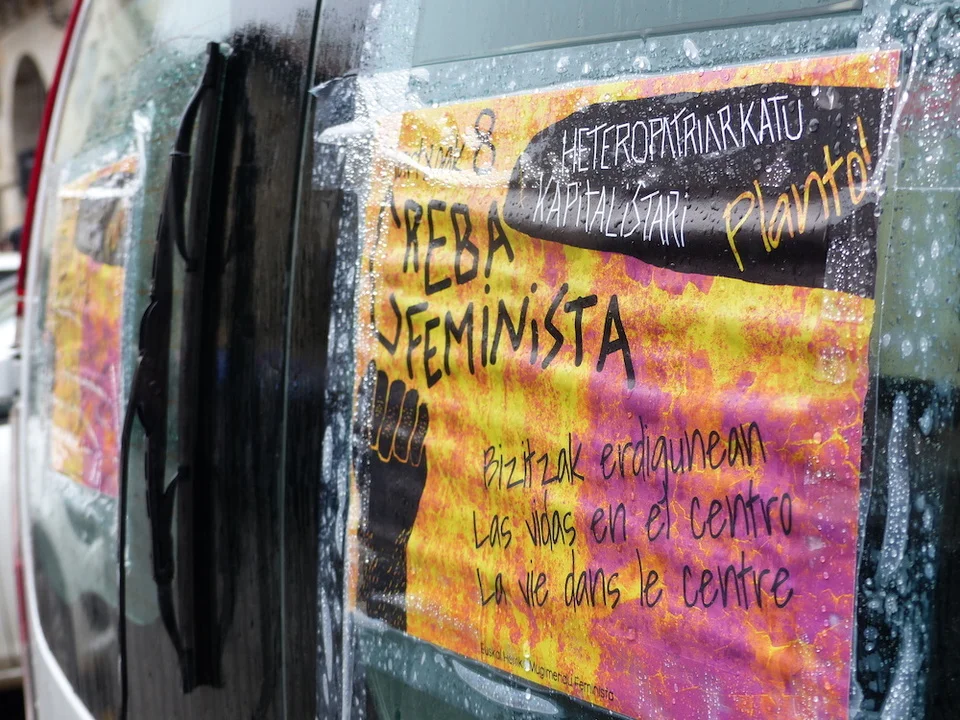 8
HETEROPATRIARKATU
KAPITALISTARI
Planto!
GREBA
FEMINISTA
Bizitzak erdigunean
Las vidas en el centro
La vie dans le centre
Euskal Herriko Mugimendu Feminista